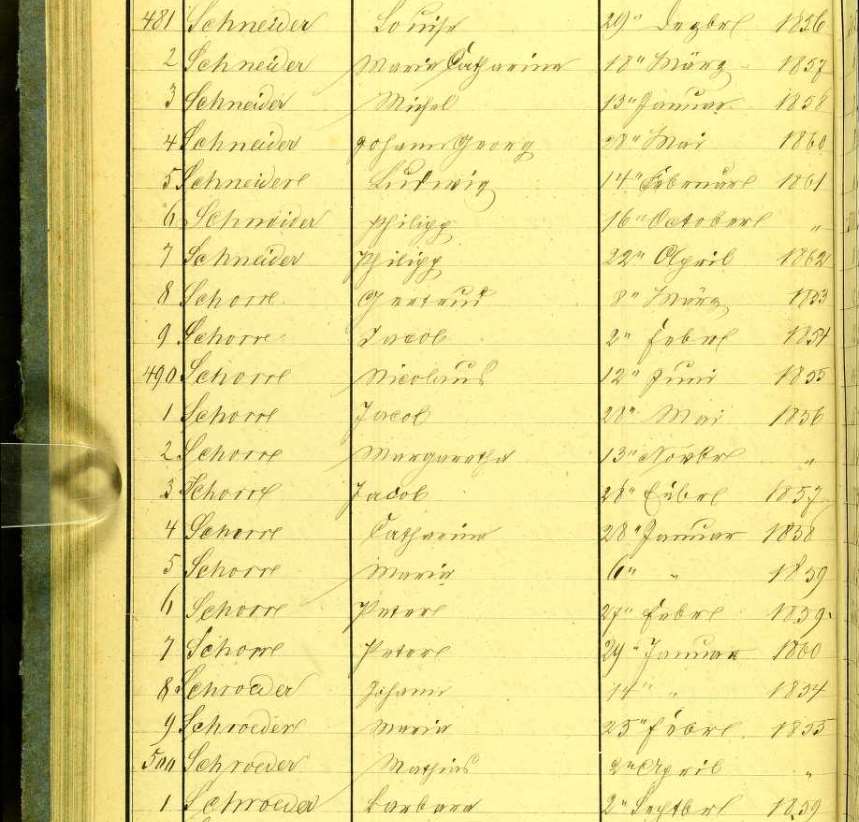 481 Schneider Louise 29" Dezbr 1856
2 Schneider Maria Catharina 18" März 1857
3 Schneider Michel 13" Januar 1858
4 Schneider Johann Georg 28" Mai 1860
5 Schneider Ludwig 14" Februar 1861
6 Schneider Philipp 16" October "
7 Schneider Philipp 22" April 1862
8 Schorr Gertrud 8" März 1853
9 Schorr Jacob 2" Febr 1854
490 Schorr Nicolaus 12" Juni 1855
1 Schorr Jacob 28" Mai 1856
2 Schorr Margaretha 13" Novbr "
3 Schorr Jacob 28" Febr 1857
4 Schorr Catharina 28" Januar 1858
5 Schorr Maria 6" " 1859
6 Schorr Peter 27" Febr 1859
7 Schorr Peter 29" Januar 1860
8 Schroeder Johann 14" " 1854
9 Schroeder Maria 25" Febr 1855
500 Schroeder Mathias 2" April "
1 Schroeder Barbara 2" Septbr 1859